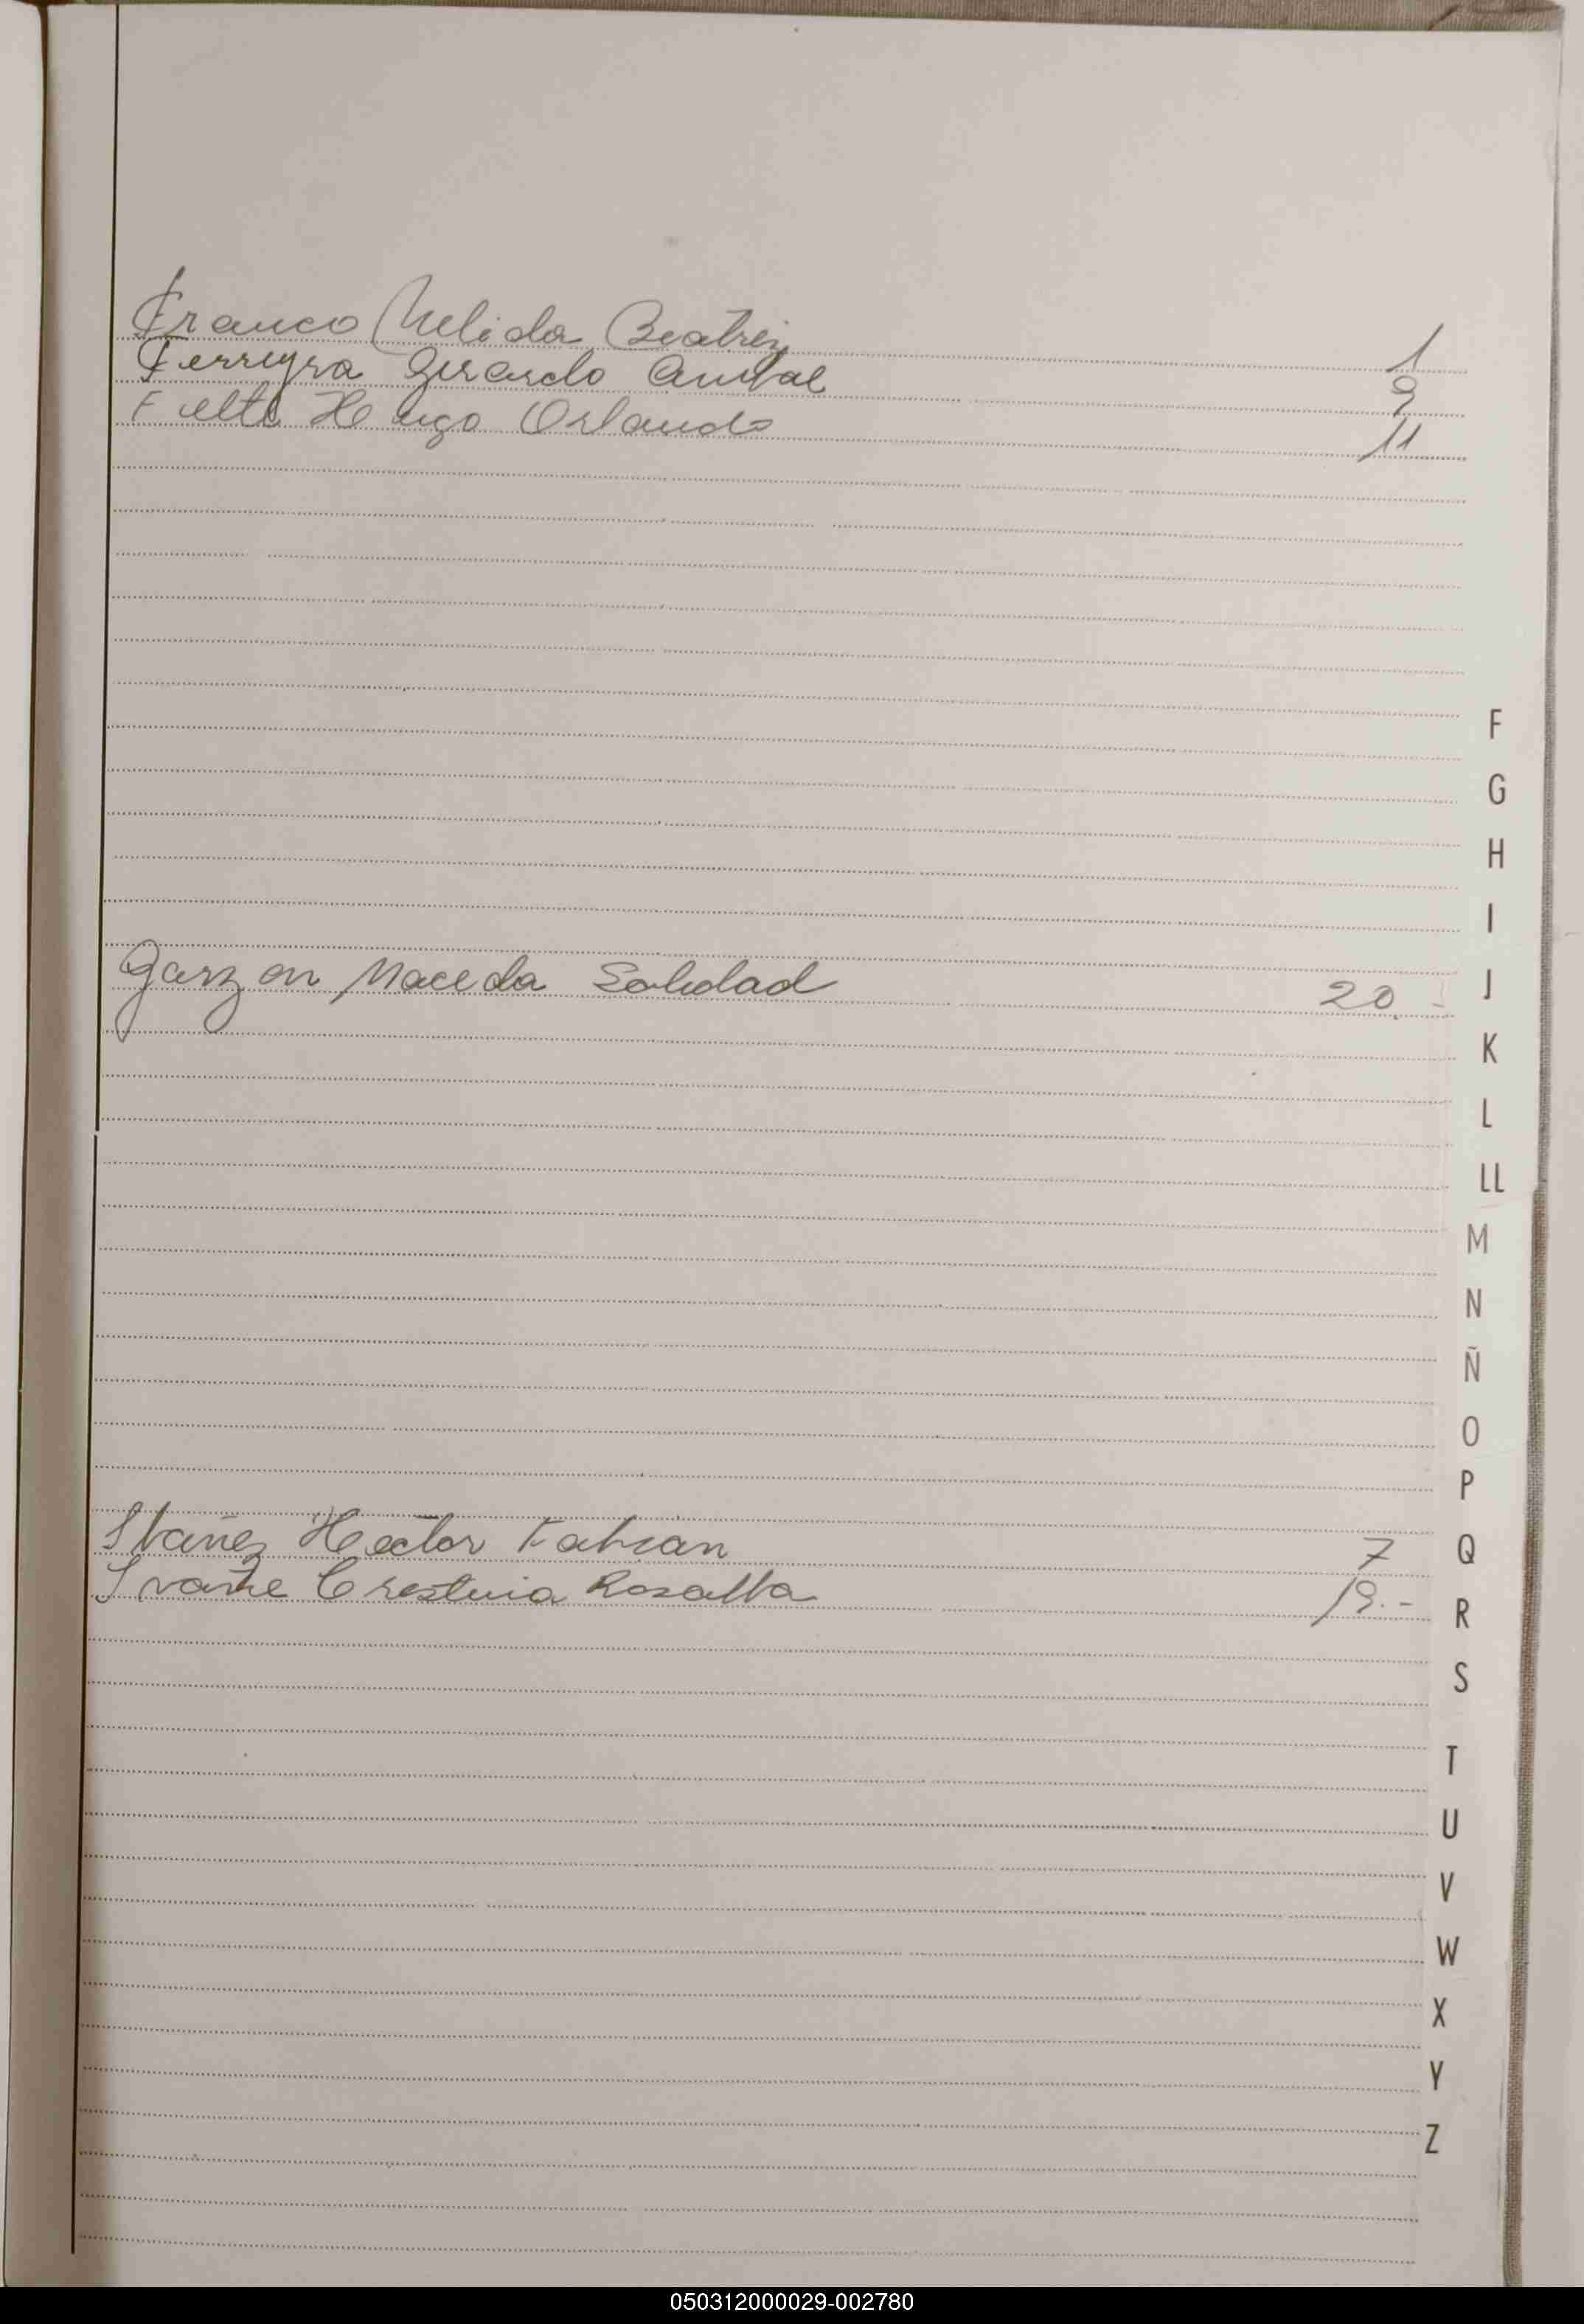 Franco Nelida Beatriz 1
Ferreyra Gerardo Anibal 9
Hugo Orlando 11
F
G
H
I
Garzon Maceda Soledad 20.-
J
K
L
LL
M
N
Ñ
O
P
Ibañez Hector Fabian 7
Q
Cristina Rosalba 19.-
R
S
T
U
V
W
X
Y
Z
050312000029-002780